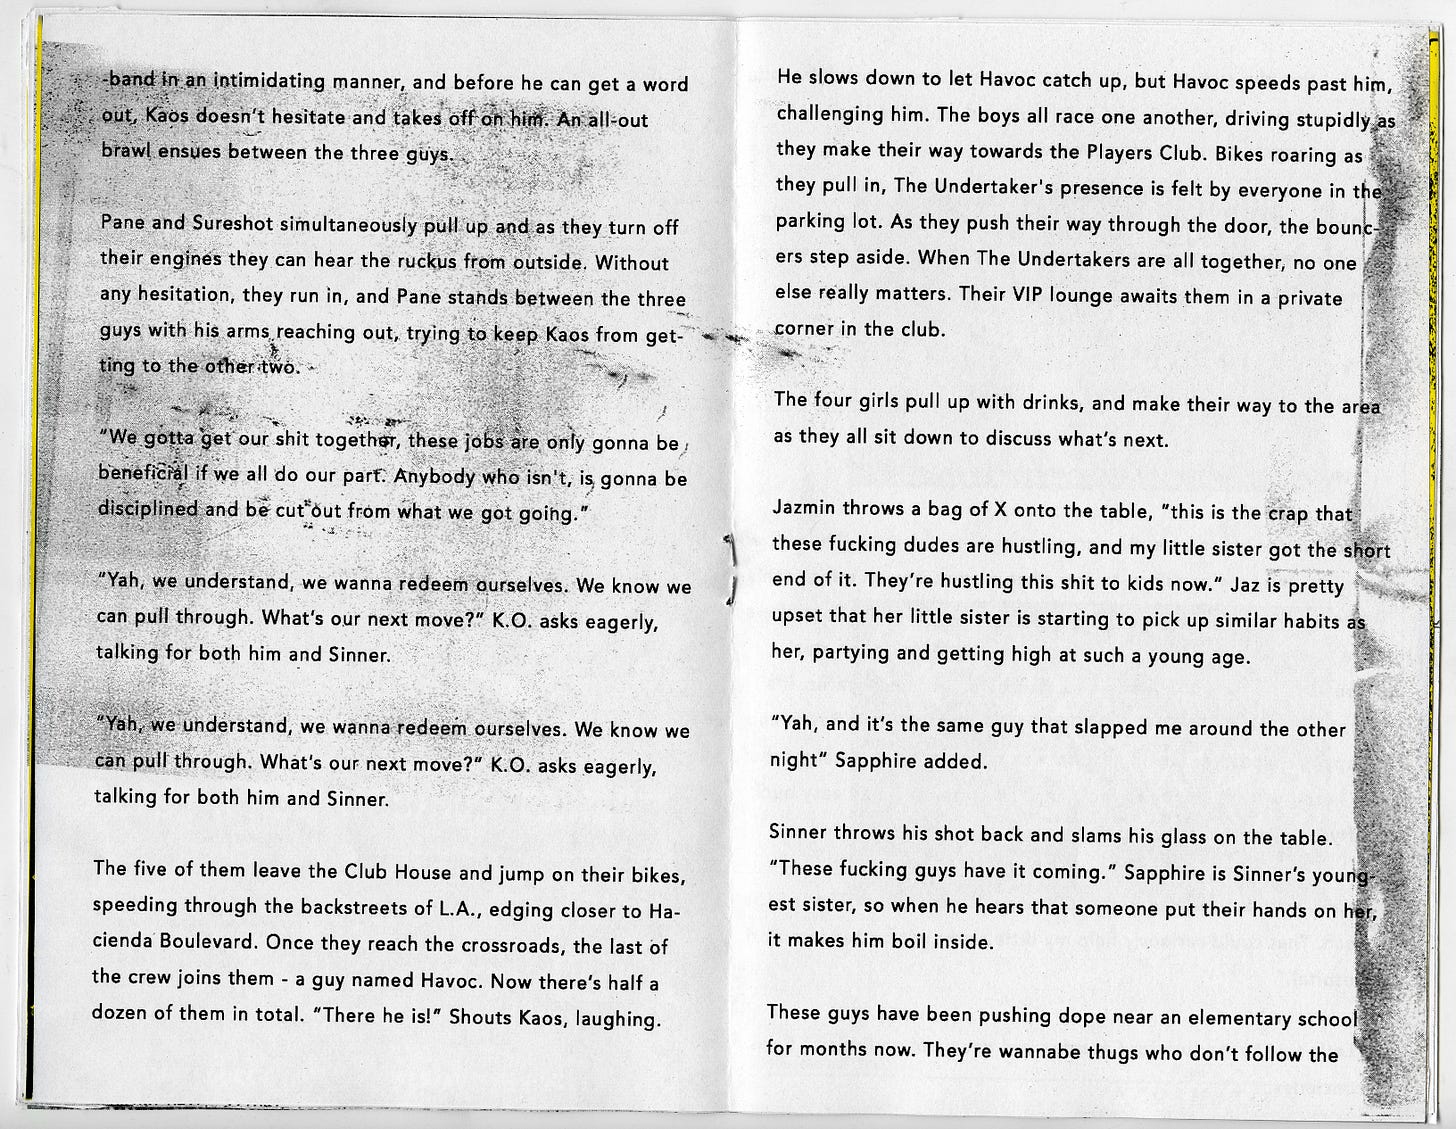 -band in an intimidating manner, and before he can get a word
out, Kaos doesn't hesitate and takes off on him. An all-out
brawl ensues between the three guys.
Pane and Sureshot simultaneously pull up and as they turn off
their engines they can hear the ruckus from outside. Without
any hesitation, they run in, and Pane stands between the three
guys with his arms reaching out, trying to keep Kaos from get-
ting to the other two.
"We gotta get our shit together, these jobs are only gonna be
beneficial if we all do our part. Anybody who isn't, is gonna be
disciplined and be cut out from what we got going."
"Yah, we understand, we wanna redeem ourselves. We know we
can pull through. What's our next move?" K.O. asks eagerly,
talking for both him and Sinner.
"Yah, we understand, we wanna redeem ourselves. We know we
can pull through. What's our next move?" K.O. asks eagerly,
talking for both him and Sinner.
The five of them leave the Club House and jump on their bikes,
speeding through the backstreets of L.A., edging closer to Ha-
cienda Boulevard. Once they reach the crossroads, the last of
the crew joins them - a guy named Havoc. Now there's half a
dozen of them in total. "There he is!" Shouts Kaos, laughing.
He slows down to let Havoc catch up, but Havoc speeds past him,
challenging him. The boys all race one another, driving stupidly as
they make their way towards the Players Club. Bikes roaring as
they pull in, The Undertaker's presence is felt by everyone in the
parking lot. As they push their way through the door, the bounc-
ers step aside. When The Undertakers are all together, no one
else really matters. Their VIP lounge awaits them in a private
corner in the club.
The four girls pull up with drinks, and make their way to the area
as they all sit down to discuss what's next.
Jazmin throws a bag of X onto the table, "this is the crap that
these fucking dudes are hustling, and my little sister got the short
end of it. They're hustling this shit to kids now." Jaz is pretty
upset that her little sister is starting to pick up similar habits as
her, partying and getting high at such a young age.
"Yah, and it's the same guy that slapped me around the other
night" Sapphire added.
Sinner throws his shot back and slams his glass on the table.
"These fucking guys have it coming." Sapphire is Sinner's young-
est sister, so when he hears that someone put their hands on her,
it makes him boil inside.
These guys have been pushing dope near an elementary school
for months now. They're wannabe thugs who don't follow the